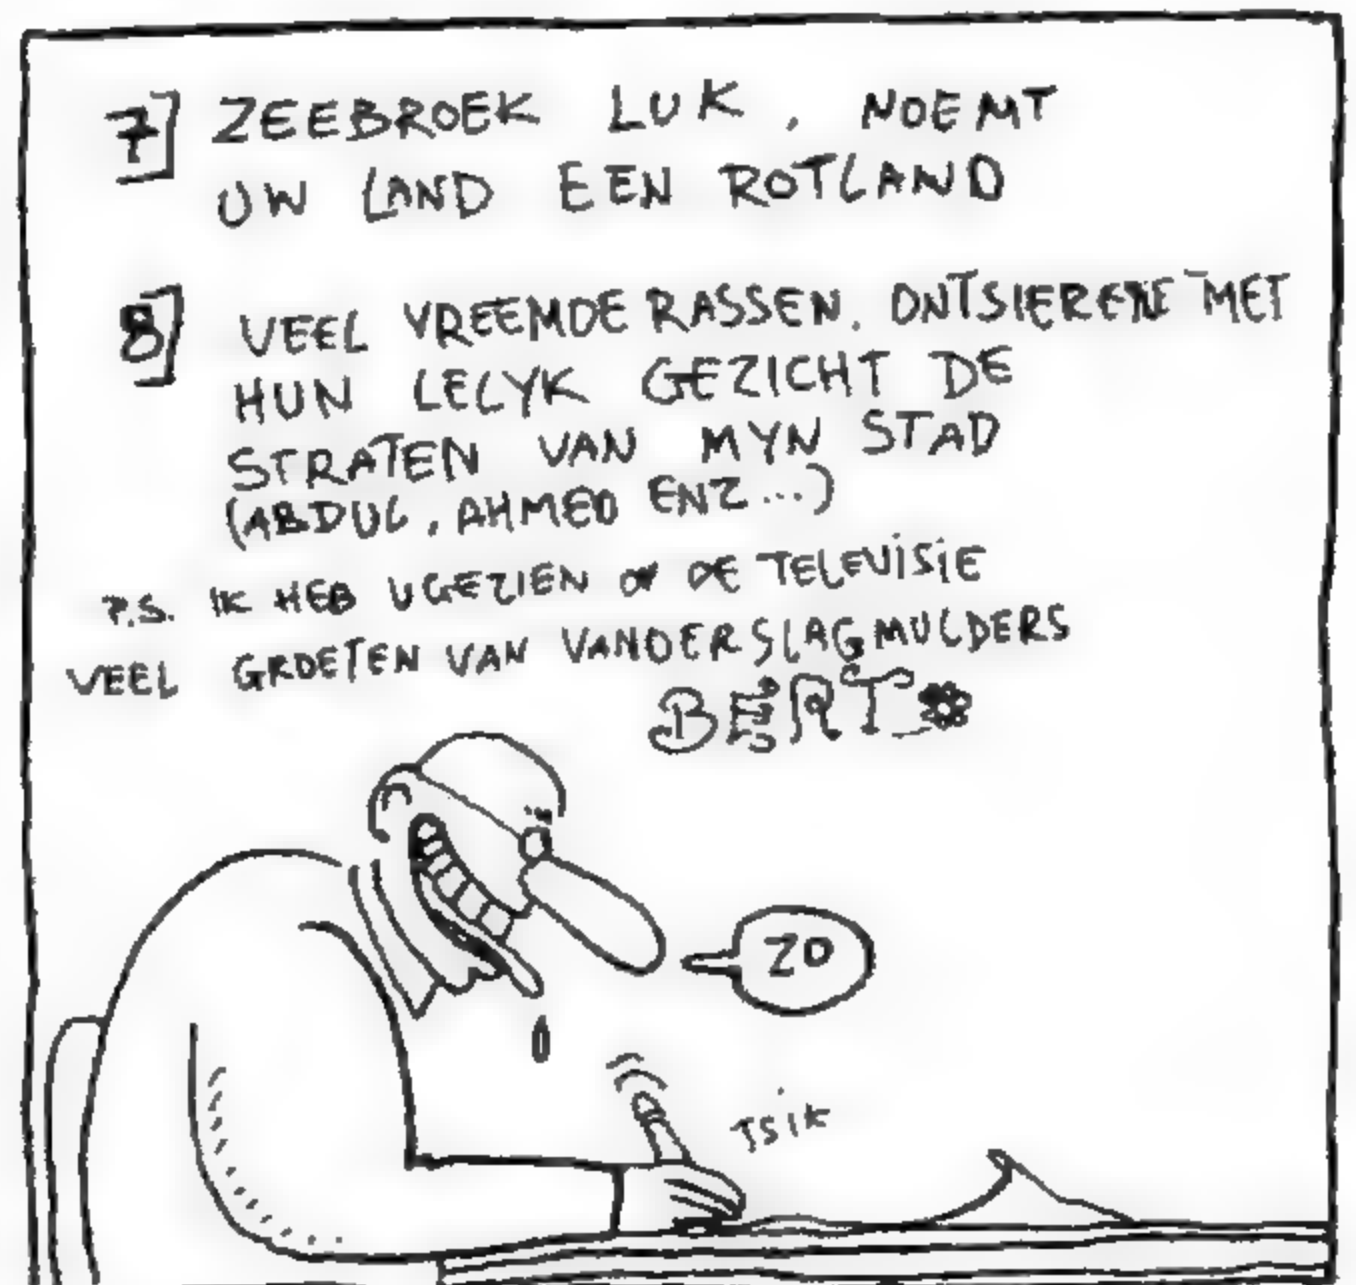 7] ZEEBROEK LUK, NOEMT
UW LAND EEN ROTLAND
8] VEEL VREEMDE RASSEN. ONTSIEREN MET
HUN LELYK GEZICHT DE
STRATEN VAN MYN STAD
(ABDUL, AHMED ENZ...)
P.S. IK HEB U GEZIEN OP DE TELEVISIE
VEEL GROETEN VAN VANDERSLAGMULDERS
BERT
ZO
TSIK